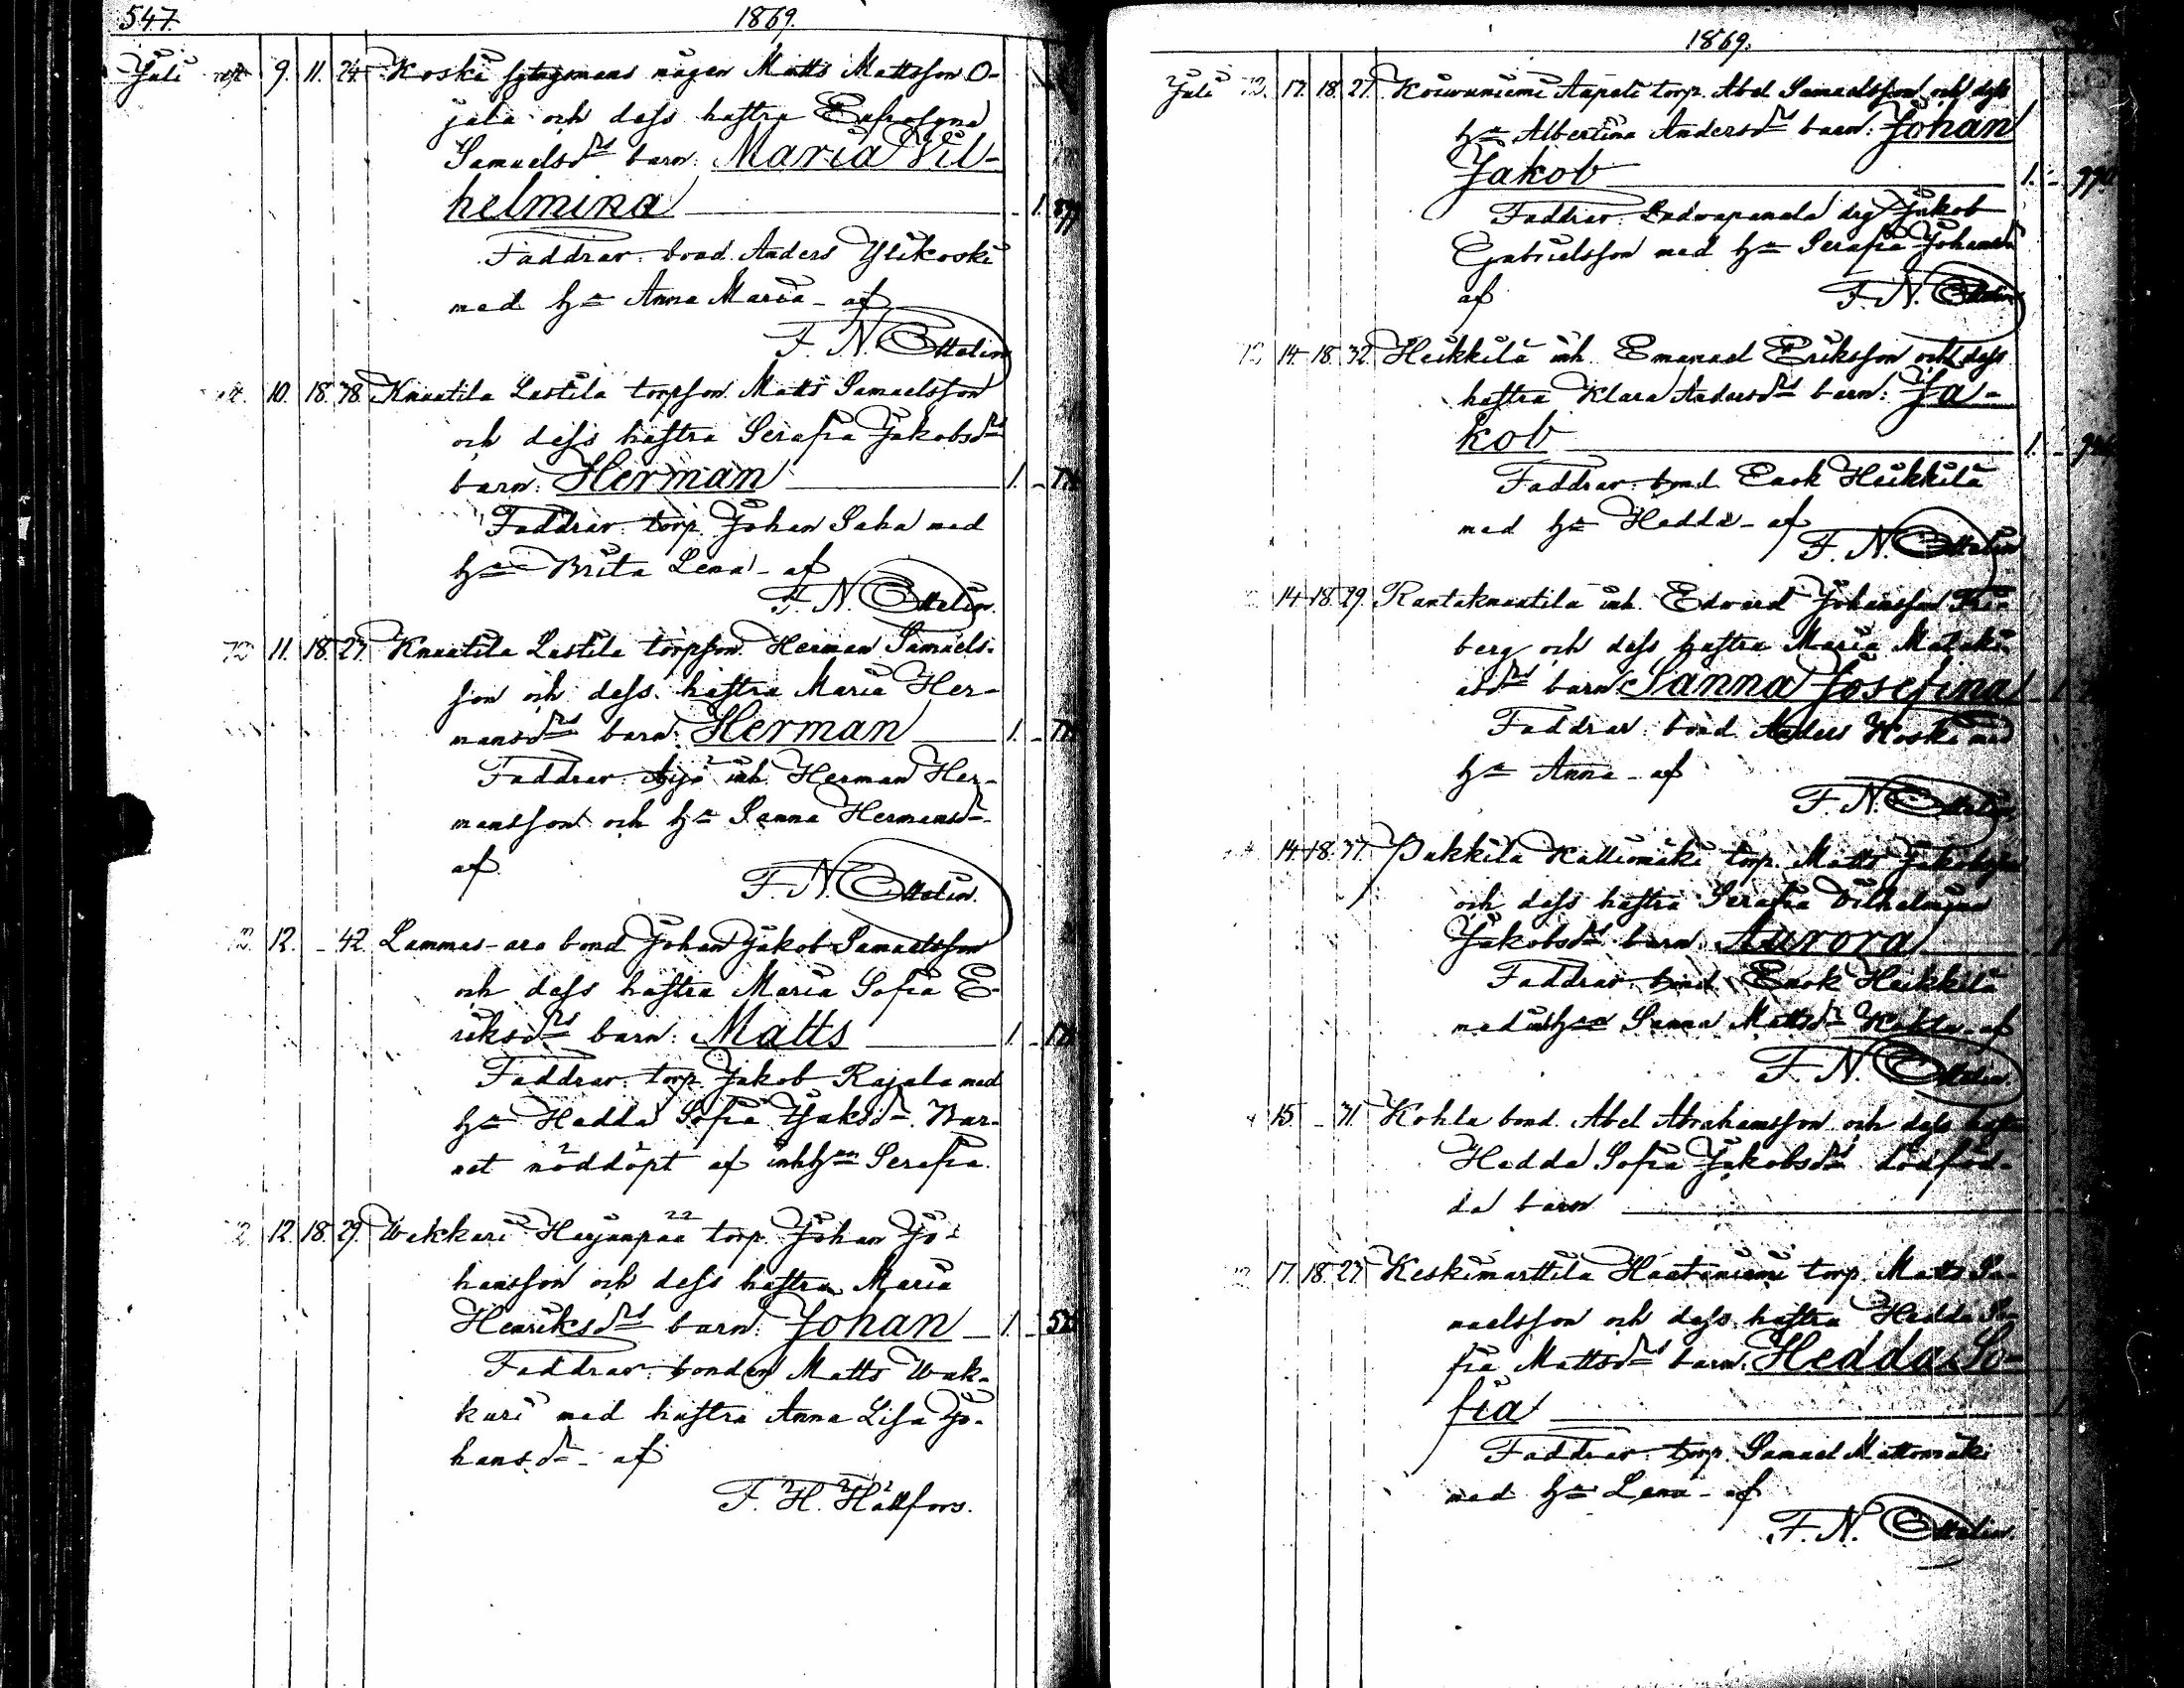 547. 1869.
Juli 9. 11. 24. Koski sytngmans mågen Matts Mattsson O-
jala och dess hustru Eufrosyna
Samuelsdrs barn: Maria Vil-
helmina 1.
Faddrar: bond. Anders Ylikoski
med h:u Anna Maria - af
F. N. Ottelin
10. 18. 38. Knaatila Lastila torpson Matts Samuelsson
och dess hustru Serafia Jakobsdrs
barn: Herman 1.
Faddrar: torp. Johan Saha med
h:u Brita Lena - af
F. N. Ottelin.
11. 18. 27. Knaatila Lastila torpson Herman Samuels-
son och dess hustru Maria Her-
mansdrs barn: Herman 1.
Faddrar: Äijö inh. Herman Her-
mansson och h:u Sanna Hermansdr
af
F. N. Ottelin.
12. - 42. Lammas-aro bond Johan Jakob Samuelsson
och dess hustru Maria Sofia E-
riksdrs barn: Matts 1.
Faddrar: torp. Jakob Rajala med
h:u Hedda Sofia Jaksdr. Bar-
net nöddöpt af inhh:un Serafia.
12. 18. 29. Wakkari Harjunpää torp. Johan Jo-
hansson och dess hustru Maria
Henriksdrs barn: Johan 1.
Faddrar: bonden Matts Wak-
kari med hustru Anna Lisa Jo-
hansdr - af
F. H. Hällfors.
1869.
Juli 17. 18. 27. Koivuniemi Aapeli torp. Abel Samuelsson och dess
h:u Albertina Andersdrs barn: Johan
Jakob 1.
Faddrar: drg Jakob
Gabrielsson med h:u Serafia
af F. N. Ottelin
14. 18. 32. Heikkilä inh. Emanuel Eriksson och dess
hustru Klara Andersdrs barn: Ja-
kob 1.
Faddrar: bond. Enok Heikkilä
med h:u Hedda - af
F. N. Ottelin
14. 18. 29. Rantaknaatila inh. Edvard Johansson Fri-
berg och dess hustru Maria Malaki-
asdrs barn: Sanna Josefina 1.
Faddrar: bond. Anders Koski med
h:u Anna - af
F. N. Ottelin.
14. 18. 37. Pukkila Kalliomäki torp. Matts Jakobsson
och dess hustru Serafia Vilhelmina
Jakobsdrs barn: Aurora 1.
Faddrar: bond. Enok Heikkilä
med inhh:u Sanna Mattsdr - af
F. N. Ottelin.
15. - 31. Kohla bond. Abel Abrahamsson och dess hustru
Hedda Sofia Jakobsdrs dödföd-
da barn
17. 18. 27. Keskimarttila Haataniemi torp. Matts Sa-
muelsson och dess hustru Hedda So-
fia Mattsdrs barn: Hedda So-
fia 1.
Faddrar: torp. Samuel Mattomäki
med h:u Lena - af
F. N. Ottelin.